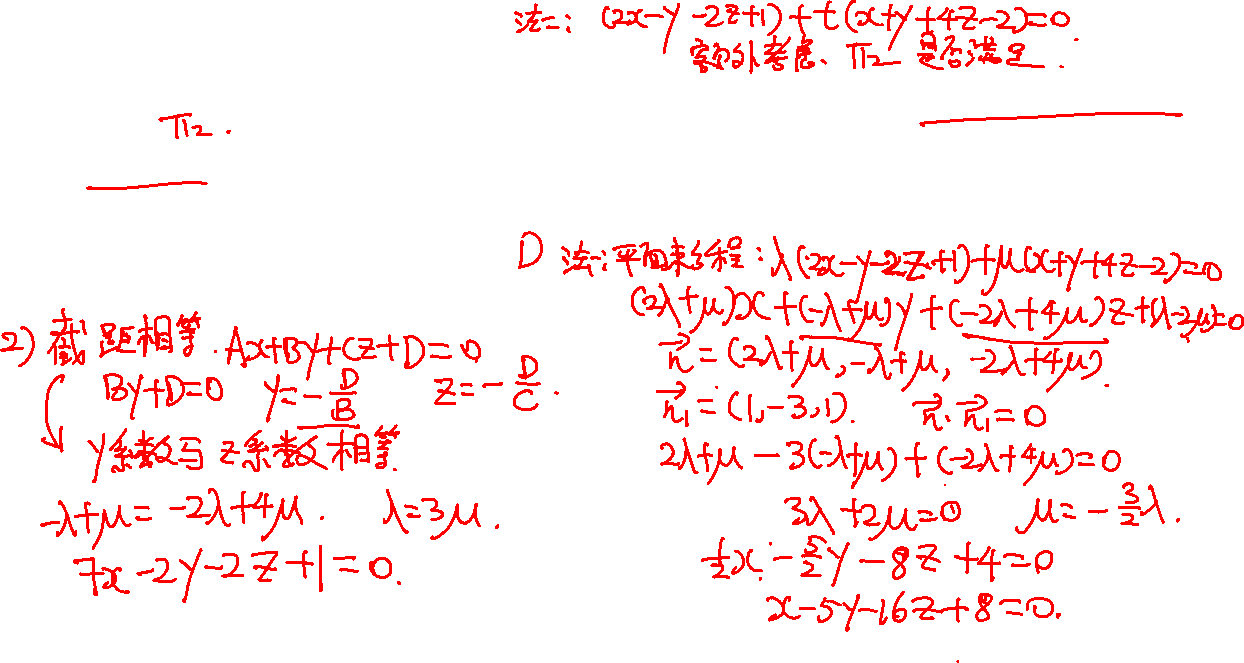 法二: (2x-y-2z+1)+t(x+y+4z-2)=0.
额外考虑、π₂ 是否满足.
π₂.
1) 法一:平面束方程:λ(2x-y-2z+1)+μ(x+y+4z-2)=0
(2λ+μ)x+(-λ+μ)y+(-2λ+4μ)z+(λ-2μ)=0
n⃗=(2λ+μ,-λ+μ, -2λ+4μ).
n⃗₁=(1,-3,1). n⃗·n⃗₁=0
2λ+μ-3(-λ+μ)+(-2λ+4μ)=0
3λ+2μ=0 μ=-3/2λ.
1/2x-5/2y-8z+4=0
x-5y-16z+8=0.
2) 截距相等. Ax+By+Cz+D=0
By+D=0 y=-D/B z=-D/C.
y系数与z系数相等.
-λ+μ=-2λ+4μ. λ=3μ.
7x-2y-2z+1=0.